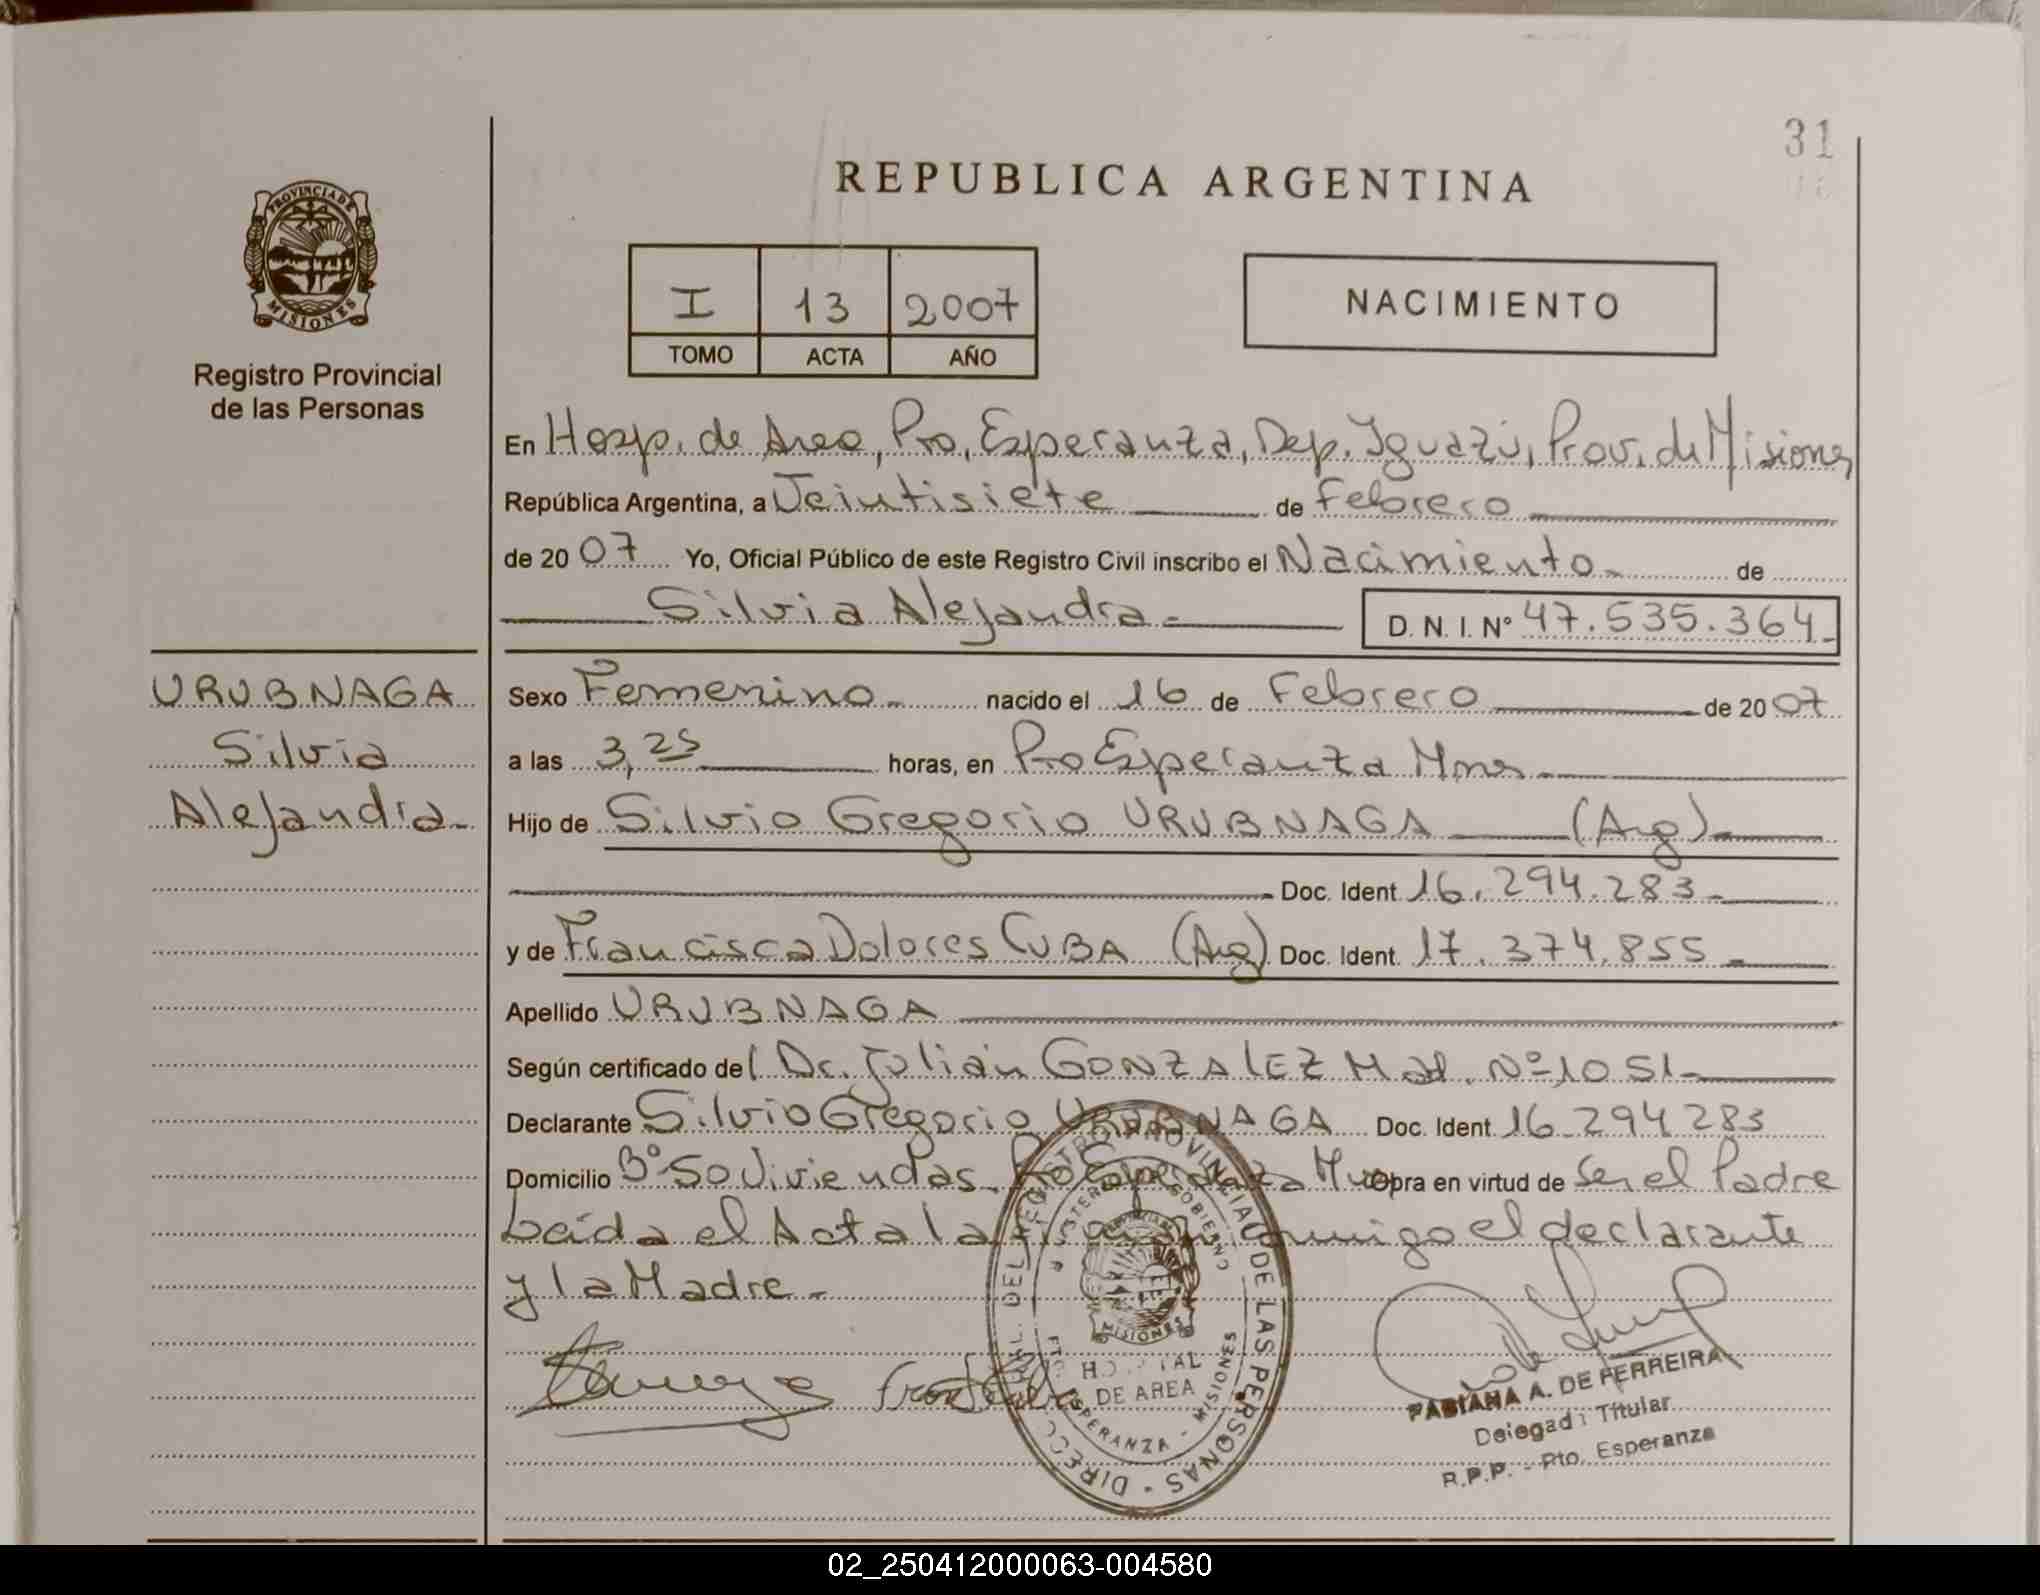 31
REPUBLICA ARGENTINA
PROVINCIA DE
MISIONES
Registro Provincial
de las Personas
I 13 2007
TOMO ACTA AÑO
NACIMIENTO
En Hosp. de Area, Pto, Esperanza, Dep. Iguazú, Prov. de Misiones
República Argentina, a Veintisiete de Febrero
de 2007 Yo, Oficial Público de este Registro Civil inscribo el Nacimiento de
Silvia Alejandra D. N. I. Nº 47.535.364
URUBNAGA
Silvia
Alejandra
Sexo Femenino nacido el 16 de Febrero de 2007
a las 3,25 horas, en Pto Esperanza Mnes
Hijo de Silvio Gregorio URUBNAGA (Arg)
Doc. Ident. 16.294.283
y de Francisca Dolores CUBA (Arg) Doc. Ident. 17.374.855
Apellido URUBNAGA
Según certificado del Dr. Julián GONZALEZ Mat. Nº 1051
Declarante Silvio Gregorio URUBNAGA Doc. Ident. 16.294.283
Domicilio Bº 50 Viviendas, Pto Esperanza Obra en virtud de Ser el Padre
Leída el Acta la firman conmigo el declarante
y la Madre
DE AREA
ESPERANZA - MISIONES
FABIANA A. DE FERREIRA
Delegada Titular
R.P.P. - Pto. Esperanza
02_250412000063-004580